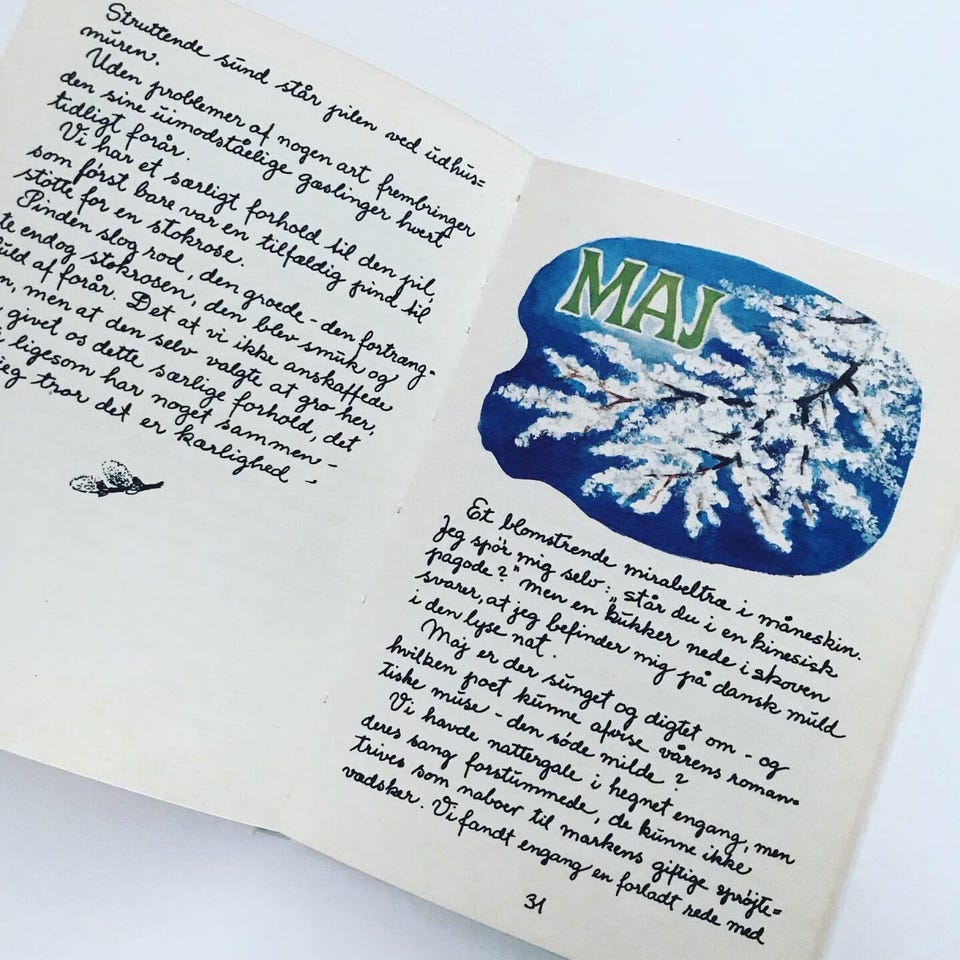 Struttende sund står pilen ved udhus=
muren.
Uden problemer af nogen art frembringer
den sine uimodståelige gæslinger hvert
tidligt forår.
Vi har et særligt forhold til den pil,
som først bare var en tilfældig pind til
støtte for en stokrose.
Pinden slog rod, den groede - den fortræng=
te endog stokrosen, den blev smuk og
uld af forår. Det at vi ikke anskaffede
n, men at den selv valgte at gro her,
givet os dette særlige forhold, det
ligesom har noget sammen -
jeg tror det er kærlighed -
MAJ
Et blomstrende mirabeltræ i måneskin.
Jeg spør mig selv: „står du i en kinesisk
pagode?" men en kukker nede i skoven
svarer, at jeg befinder mig på dansk muld
i den lyse nat.
Maj er der sunget og digtet om - og
hvilken poet kunne afvise vårens roman=
tiske muse - den søde milde?
Vi havde nattergale i hegnet engang, men
deres sang forstummede, de kunne ikke
trives som naboer til markens giftige sprøjte=
vædsker. Vi fandt engang en forladt rede med
31